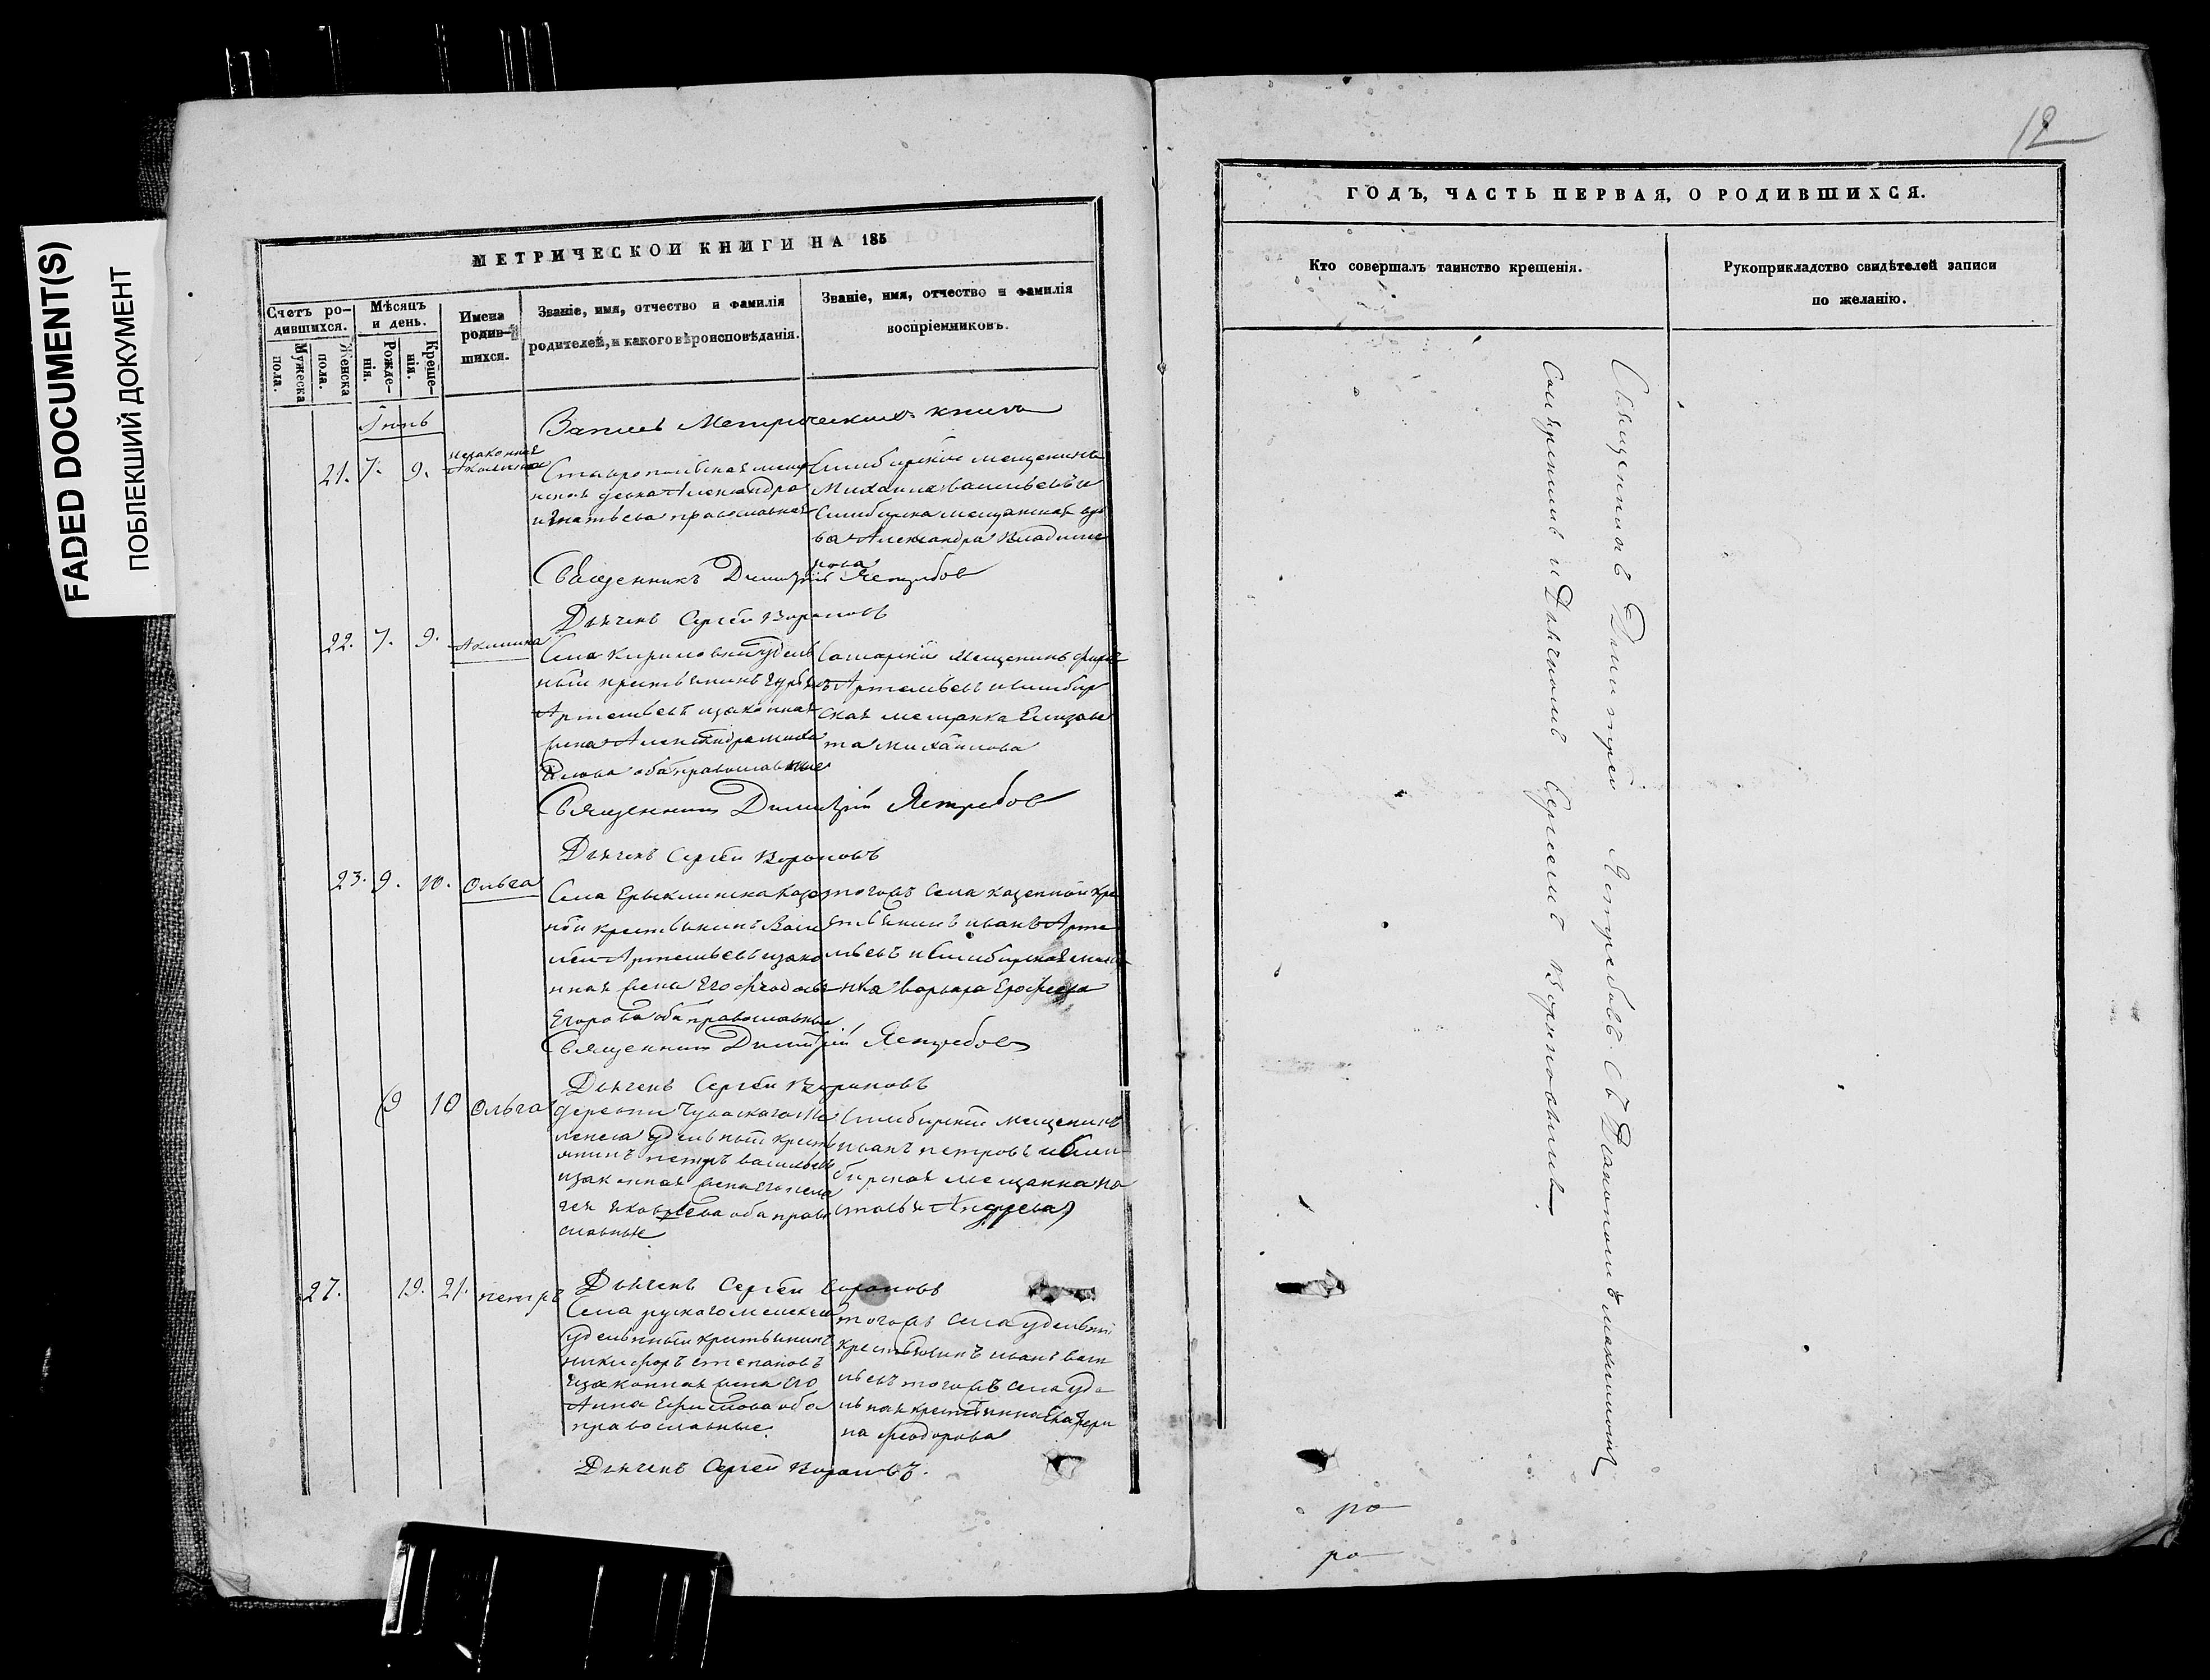 FADED DOCUMENT(S)
ПОБЛЕКШИЙ ДОКУМЕНТ
МЕТРИЧЕСКОЙ КНИГИ НА 185
Счетъ ро-
дившихся.
Мужеска
пола.
Женска
пола.
Мѣсяцъ
и день.
Рожде-
нія.
Креще-
нія.
Имена
родив-
шихся.
Званіе, имя, отчество и фамилія
родителей, и какого вѣроисповѣданія.
Званіе, имя, отчество и фамилія
воспріемниковъ.
Іюнь
незаконная
21. 7. 9.
Ставропольская мещан
ская девка Александра
Игнатьева православная
Симбирскій мещенинъ
Михаила васильевъ и
Симбирска мещанская вдо
ва Александра Владими
рова
Священникъ Димитрій Ястребов
Дьячекъ Сергей Вороновъ
22. 7. 9. Акилина
Села Кириловки удель
ный крестьянинъ
Артемьевъ и законная
жена Александра Миха
йлова оба православные
мещенинъ
Артемьевъ и симбир
ская мещанка Елизаве
та михайлова
Священникъ Димитрій Ястребов
Дьячекъ Сергей Вороновъ
23. 9. 10. Ольга
Села Ерыклинска казе
ной крестьянинъ Васи
лей Артемьевъ и зако
нная жена его Федосья
Егорова оба православные
того жъ села казенной кре
стьянинъ иванъ Арте
мьевъ и Симбирская меща
нка варвара Ерофеева
Священникъ Димитрій Ястребов
Дьячекъ Сергей Вороновъ
9 10 Ольга
деревни Чуваскаго Ме
лекеса удельный кресть
янинъ петръ васильевъ
и законная жена его пела
гея Яковлева оба право
славные
Симбирскій мещенинъ
иванъ петровъ и Сим
бирская мещанка на
стасья Андреева
27. 19. 21. петръ
Дьячекъ Сергей вороновъ
Села рускаго мелекеса
удельный крестьянинъ
никифоръ степановъ
и законная жена его
Анна Ефимова оба
православные.
того жъ села удельный
крестьянинъ иванъ васи
льевъ того жъ села уде
льная крестьянка Екатери
на Феодорова
Дьячекъ Сергей Вороновъ.
12
ГОДЪ, ЧАСТЬ ПЕРВАЯ, О РОДИВШИХСЯ.
Кто совершалъ таинство крещенія.
Рукоприкладство свидѣтелей записи
по желанію.
Священникъ Димитрей Ястребовъ съ Диакономъ
и Дьячкомъ Сергеемъ Вороновымъ
ро
ро